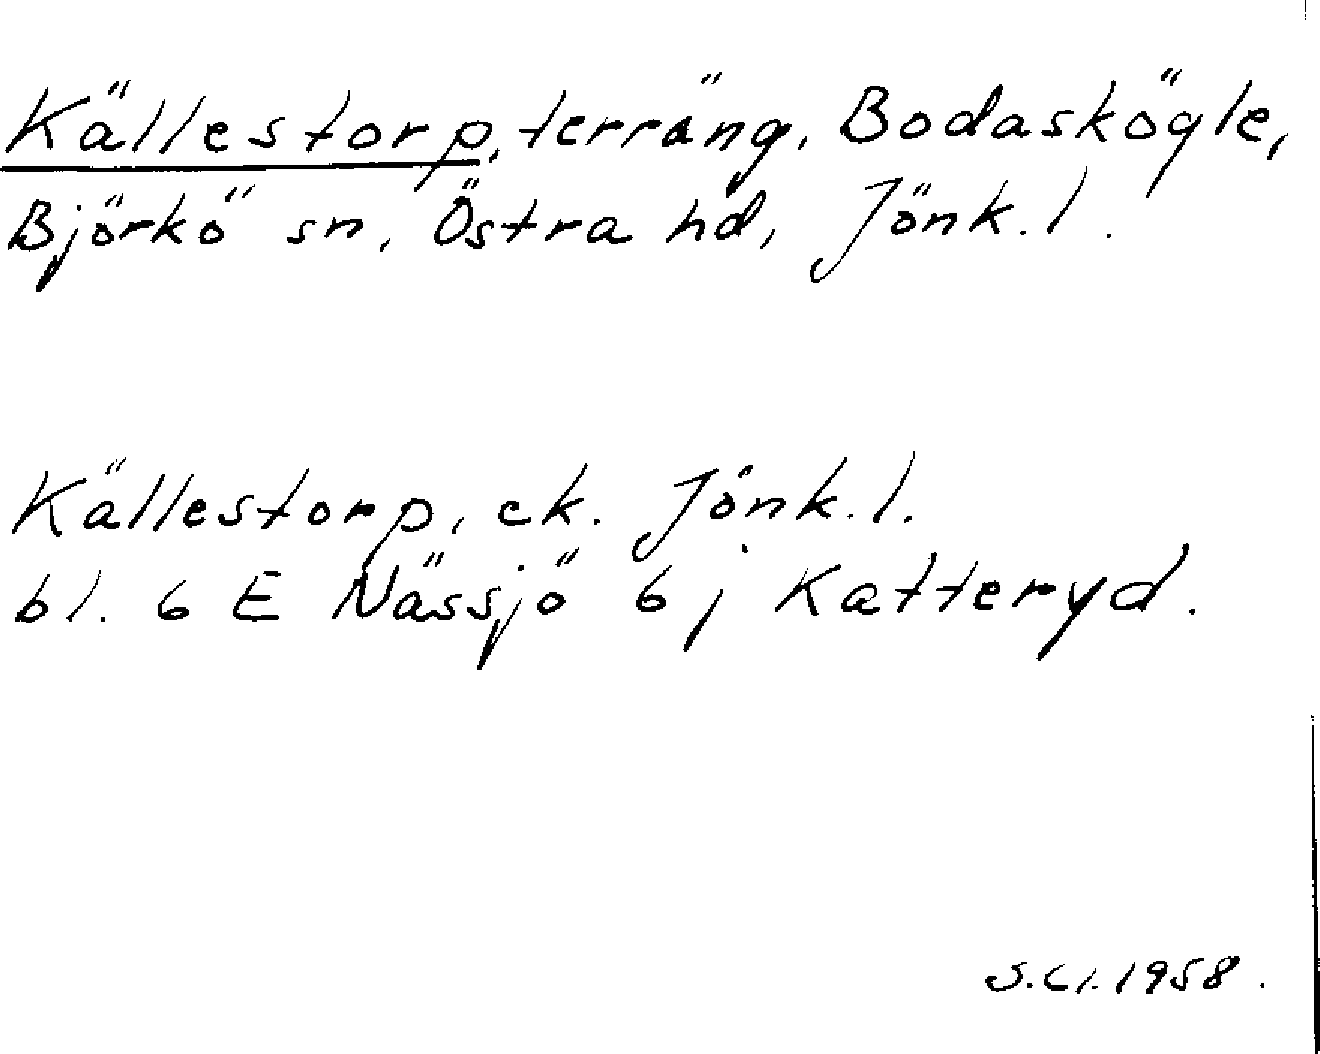 Källestorp, terräng, Bodaskögle,
Björkö sn, Östra hd, Jönk. l.
Källestorp, ek. Jönk. l.
bl. 6 E Nässjö 6 j Katteryd.
S.Cl. 1958.